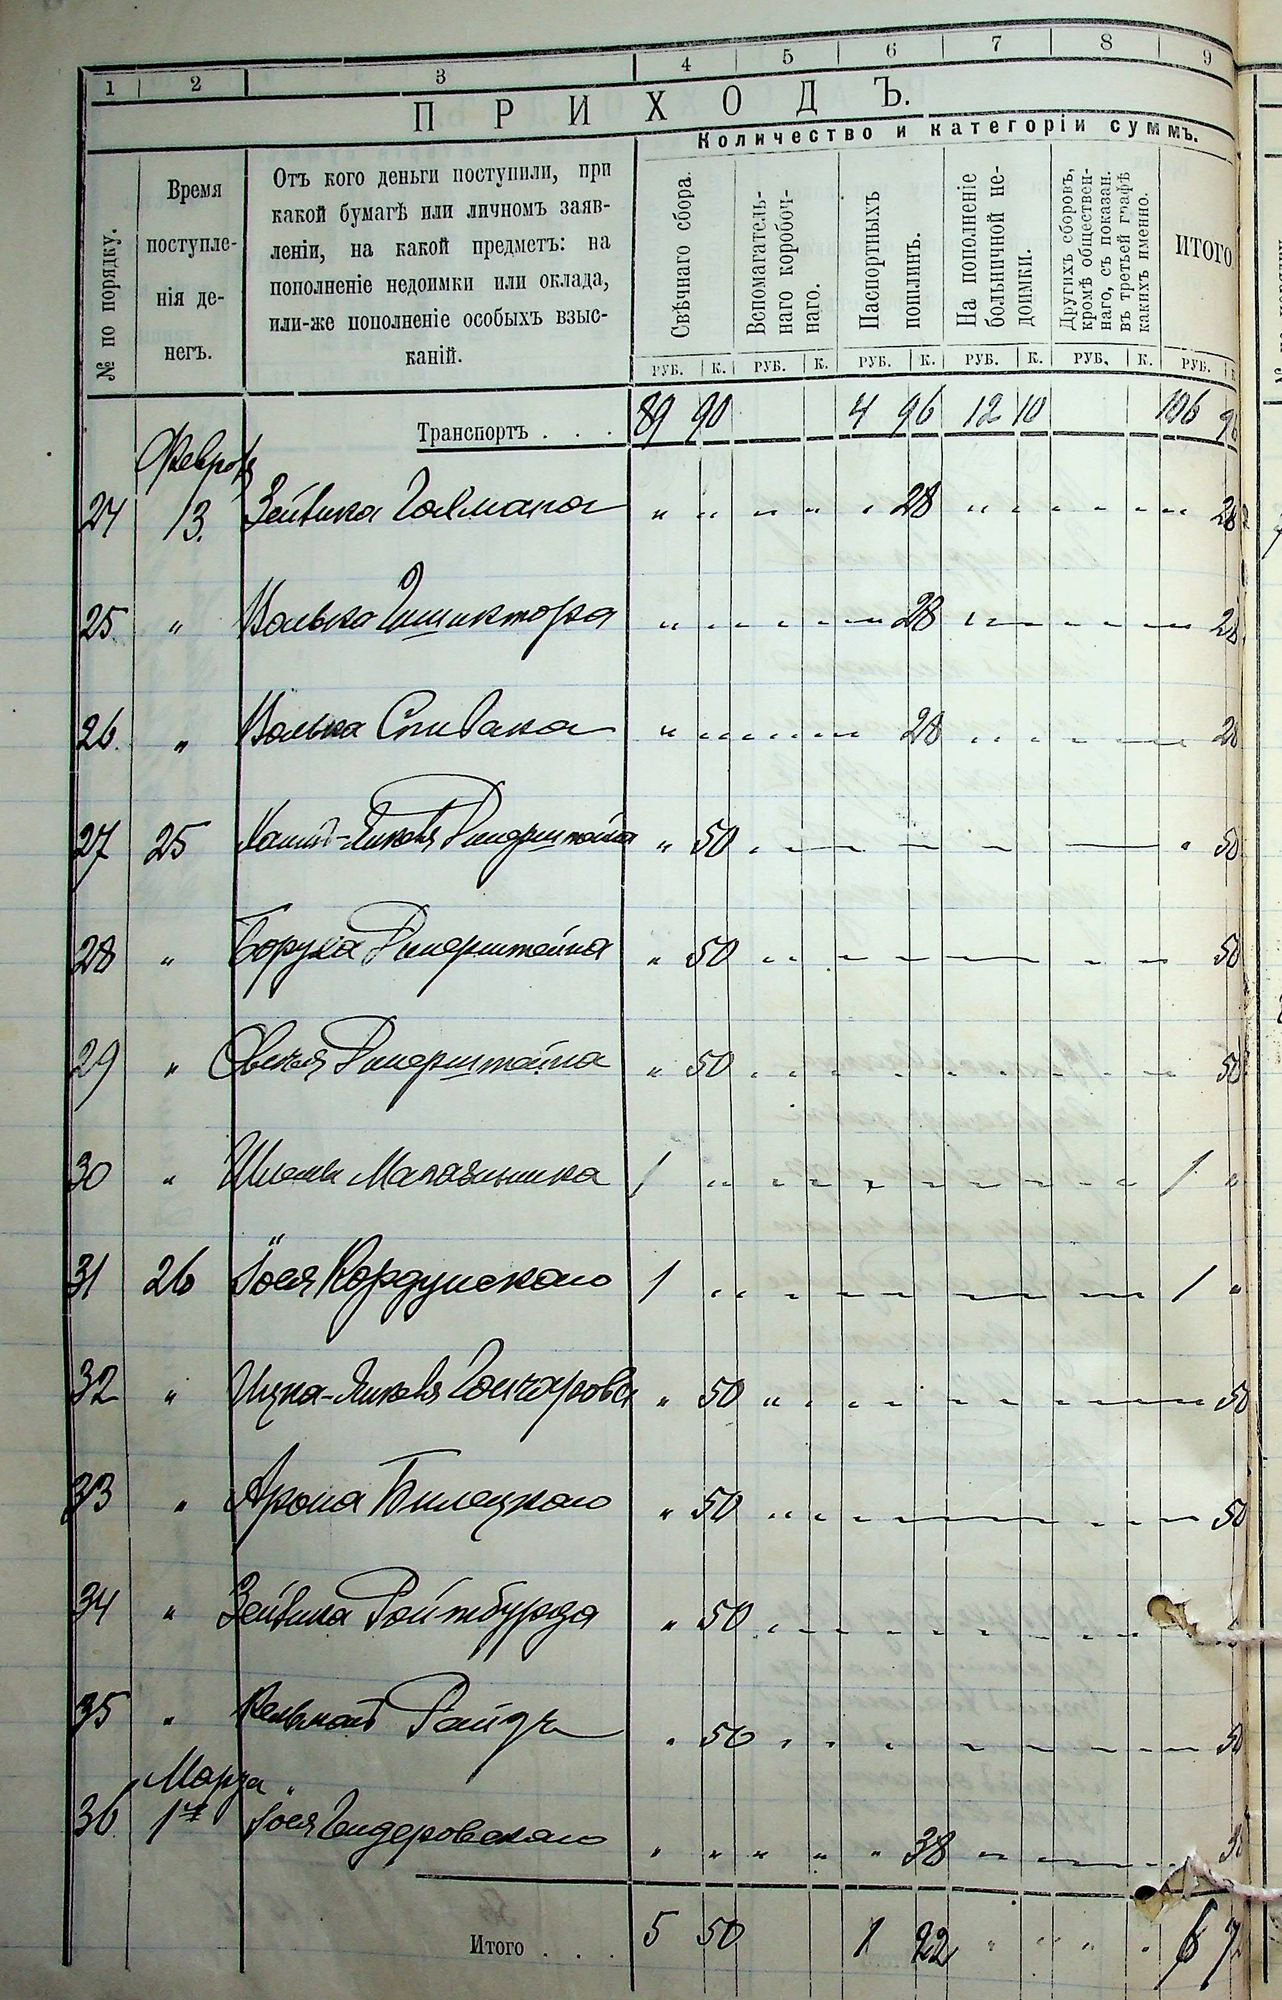 1 2 3 4 5 6 7 8 9
ПРИХОДЪ.
Количество и категоріи суммъ.
№ по порядку.
Время
поступле-
нія де-
негъ.
Отъ кого деньги поступили, при
какой бумагѣ или личномъ заяв-
леніи, на какой предметъ: на
пополненіе недоимки или оклада,
или-же пополненіе особыхъ взыс-
каній.
Свѣчнаго сбора.
Вспомагатель-
наго коробоч-
наго.
Паспортныхъ
поплинъ.
На пополненіе
больничной не-
доимки.
Другихъ сборовъ,
кромѣ обществен-
наго, съ показан.
въ третьей графѣ
какихъ именно.
ИТОГО
РУБ. К. РУБ. К. РУБ. К. РУБ. К. РУБ. К. РУБ.
Транспортъ . . . 89 90 4 96 12 10 106 96
Февраля
24 13. Зейвика 28 28
25 " Волько 28 28
26. " Волька Спивака 28 28
27 25 50 50
28 " Боруха 50 50
29 " Овсея 50 50
30 " Шлемы Магазинника 1 " 1 "
31 26 Іося Кордунскаго 1 " 1 "
32 " Ицка-Янкеля Гончарова " 50 50
33 " Арона Билецкаго " 50 50
34 " Зейвика Ройтбурда " 50
35 " " 50 50
Марта
36 1го Іося " 38 38
Итого . . . 5 50 1 22 6 72